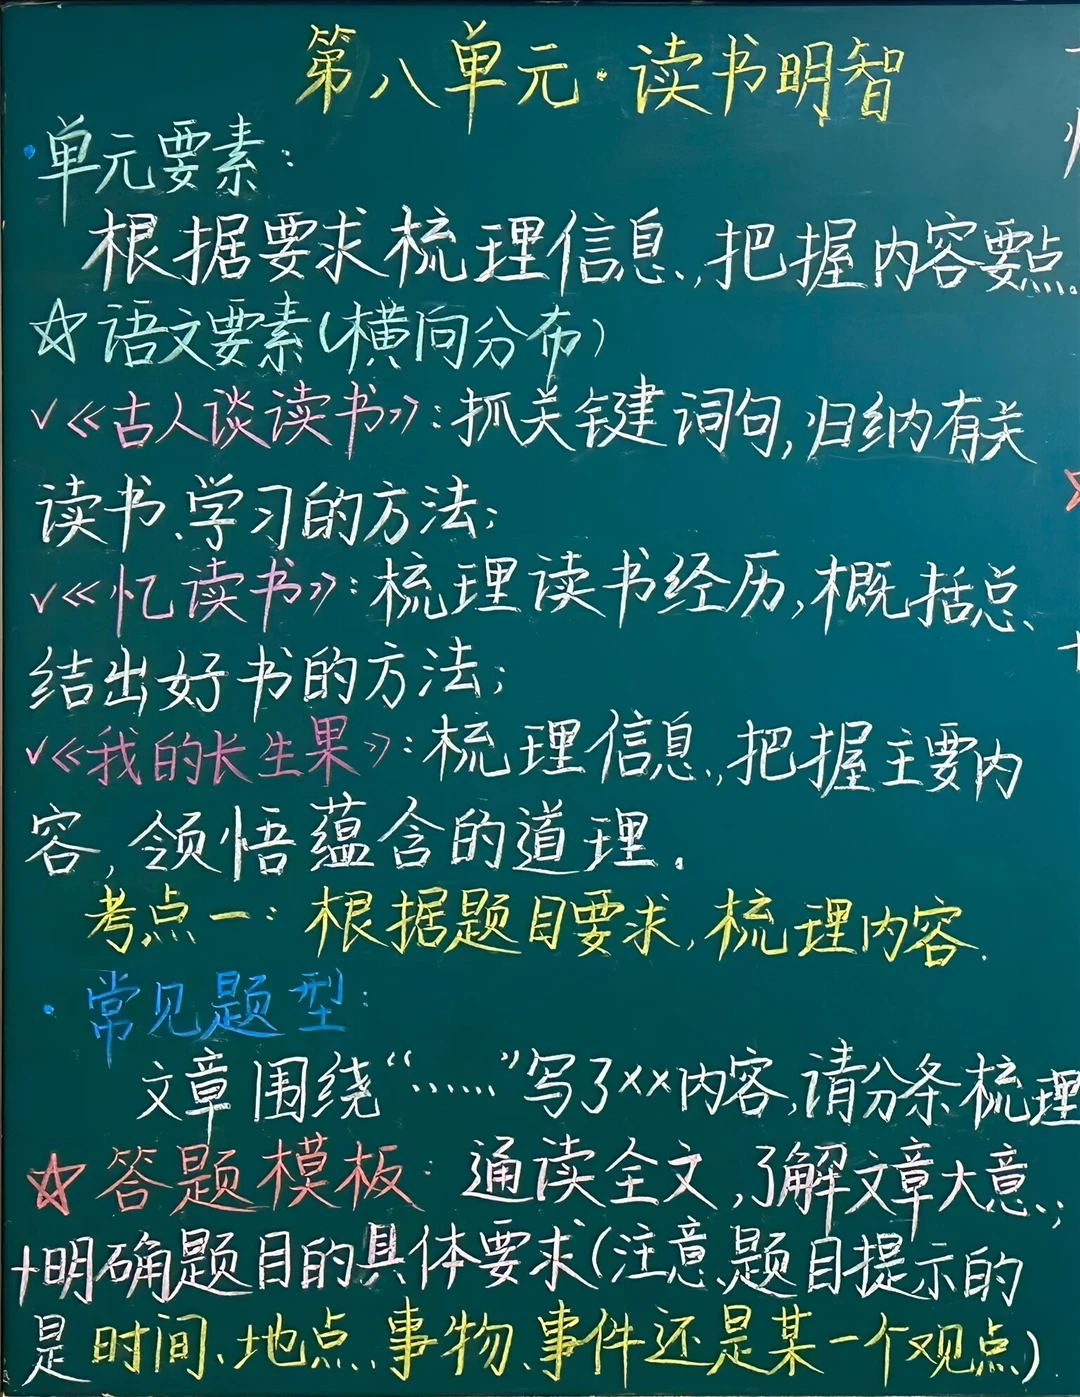 第八单元·读书明智
·单元要素:
根据要求梳理信息,把握内容要点。
☆语文要素(横向分布)
√《古人谈读书》:抓关键词句,归纳有关
读书、学习的方法;
√《忆读书》:梳理读书经历,概括总
结出好书的方法;
√《我的长生果》:梳理信息,把握主要内
容,领悟蕴含的道理.
考点一:根据题目要求,梳理内容.
·常见题型:
文章围绕“……”写了××内容,请分条梳理
☆答题模板:通读全文,了解文章大意;
+明确题目的具体要求(注意题目提示的
是时间、地点、事物、事件还是某一个观点)